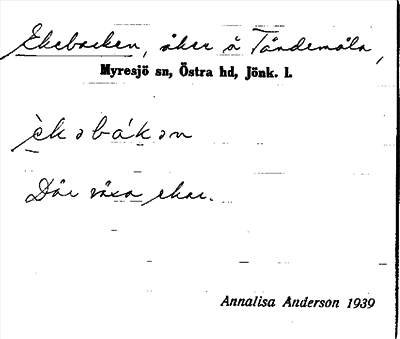 Ekebacken, åker å Tåndemåla,
Myresjö sn, Östra hd, Jönk. l.
èkəbákən
Där växa ekar.
Annalisa Anderson 1939